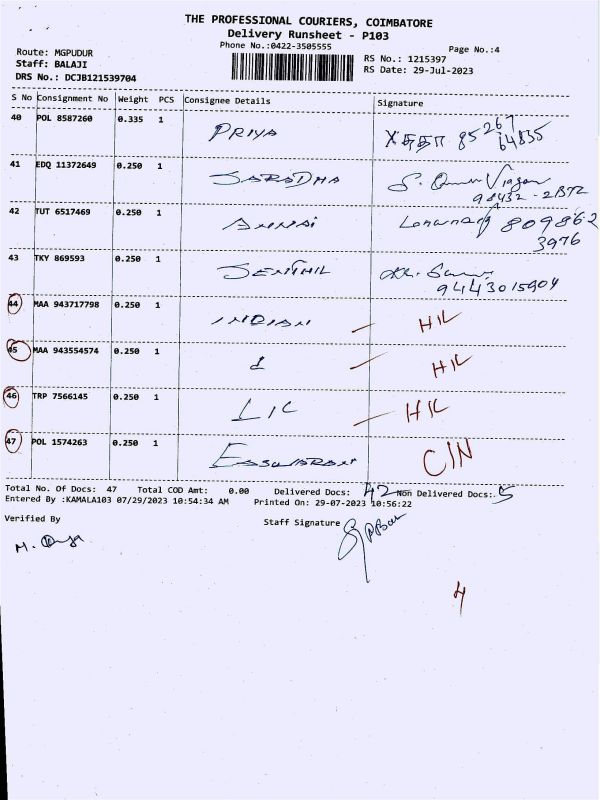 THE PROFESSIONAL COURIERS, COIMBATORE
Delivery Runsheet - P103
Phone No.:0422-3505555
Page No.:4
Route: MGPUDUR
Staff: BALAJI
DRS No.: DCJB121539704
RS No.: 1215397
RS Date: 29-Jul-2023
S No Consignment No Weight PCS Consignee Details Signature
40 POL 8587260 0.335 1 PRIYA 85267
64835
41 EDQ 11372649 0.250 1 SARADHA
42 TUT 6517469 0.250 1 ANNAI 809862
3976
43 TKY 869593 0.250 1 SENTHIL
9443015904
44 MAA 943717798 0.250 1 INDIAN - HIL
45 MAA 943554574 0.250 1 - HIL
46 TRP 7566145 0.250 1 LIC - HIL
47 POL 1574263 0.250 1 ESSWARAN CIN
Total No. Of Docs: 47 Total COD Amt: 0.00 Delivered Docs: 42 Non Delivered Docs: 5
Entered By :KAMALA103 07/29/2023 10:54:34 AM Printed On: 29-07-2023 10:56:22
Verified By Staff Signature
4